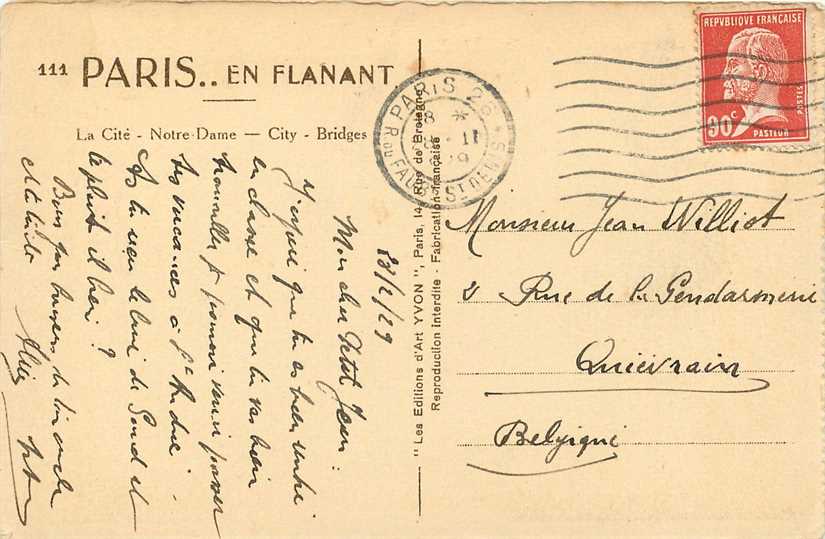 111 PARIS.. EN FLANANT
La Cité - Notre-Dame — City - Bridges
REPVBLIQUE FRANÇAISE
POSTES
90c
PASTEUR
PARIS 26
R. DU FAUBG ST DENIS
" Les Editions d'Art YVON ", Paris, 14, Rue de Bretagne
Reproduction Interdite - Fabrication française
23/2/29
Mon cher Petit Jean :
J'espère que tu es bien rentré
en classe et que tu vas bien
travailler pr pouvoir venir passer
tes vacances à St André.
As tu reçu le livre de
te plait il bien ?
Bons baisers de ton oncle
et ta tante
Monsieur Jean Williot
2 Rue de la Gendarmerie
Quiévrain
Belgique